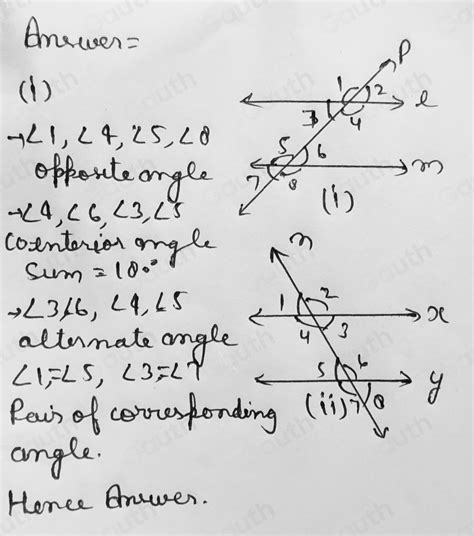 Answer=
(i)
→∠1, ∠4, ∠5, ∠8
opposite angle
→∠4, ∠6, ∠3, ∠5
Cointerior angle
Sum = 180°
→∠3,∠6, ∠4, ∠5
alternate angle
∠1,=∠5, ∠3=∠7
Pair of corresponding
angle.
Hence Answer.
p
1 2
l
3 4
5 6
m
7 8
(i)
n
1 2
x
4 3
5 6
y
7 8
(ii)